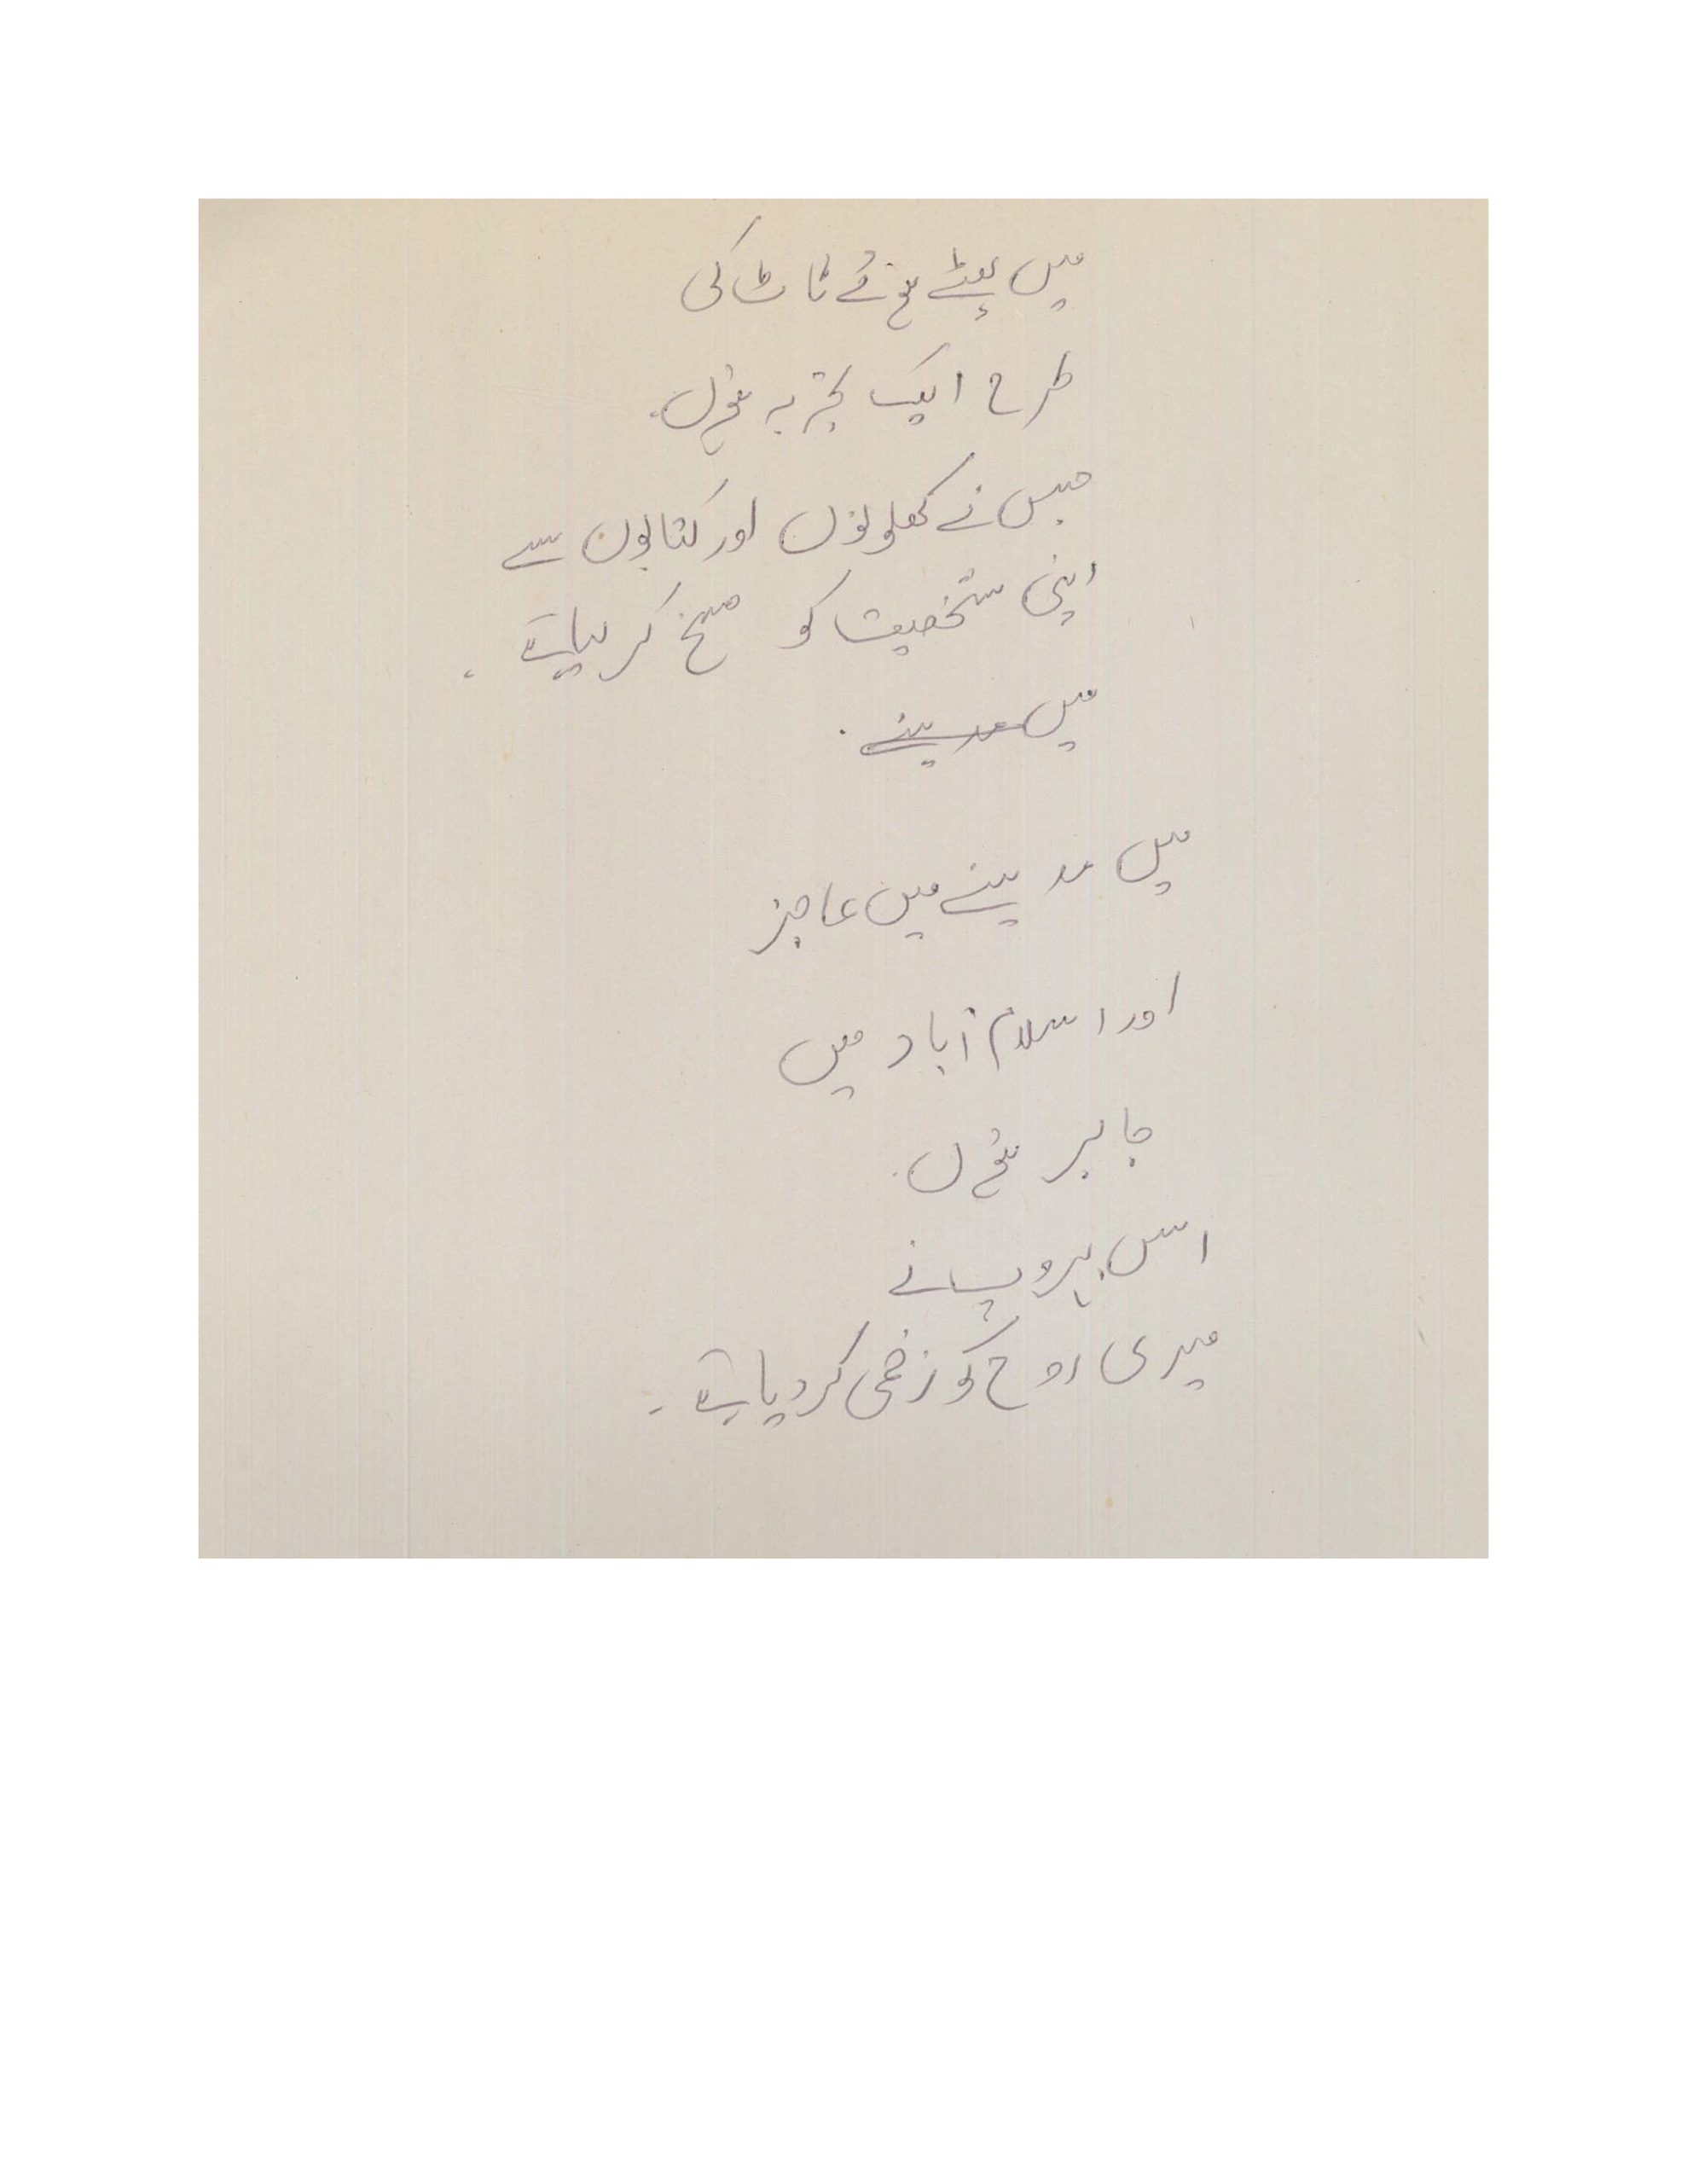 میں پھٹے ہوئے ٹاٹ کی
طرح ایک تجربہ ہوں۔
جس نے کھلونوں اور کتابوں سے
اپنی شخصیت کو مسخ کر لیا ہے۔
میں مدینے۔
میں مدینے میں عاجز
اور اسلام آباد میں
جابر ہوں۔
اس بہروپ نے
میری روح کو زخمی کر دیا ہے۔